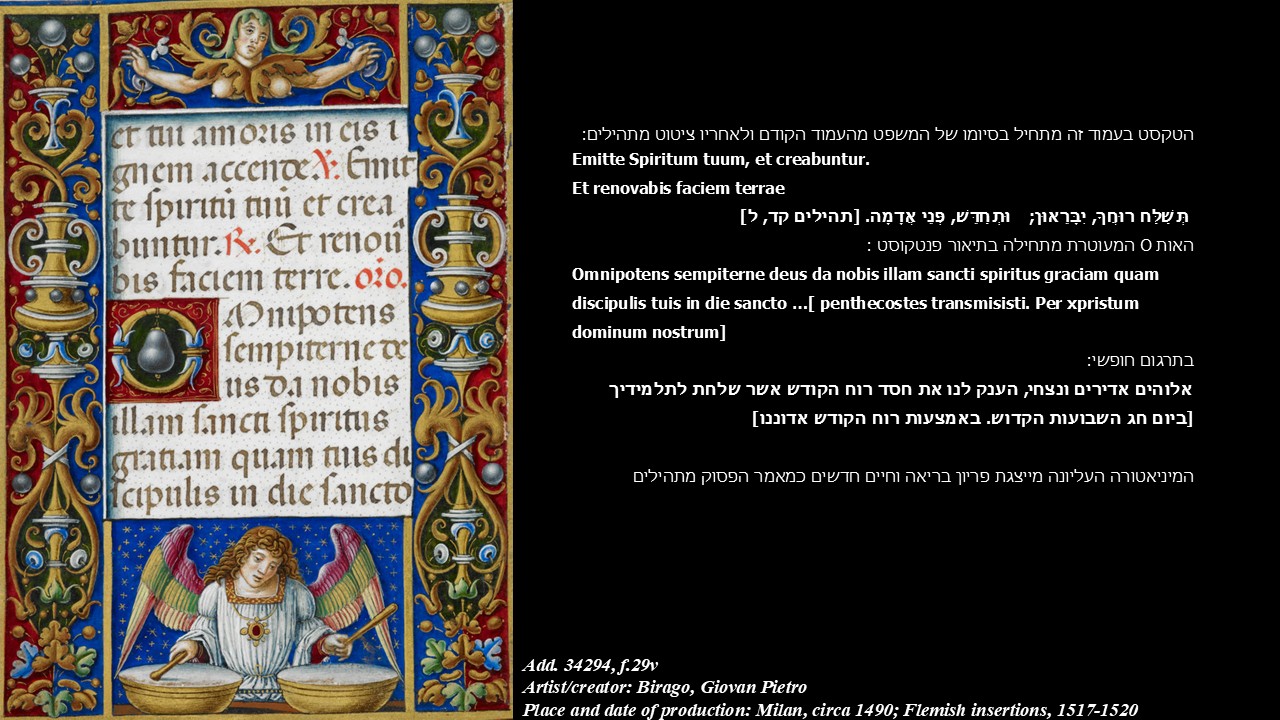 et tui amoris in eis i
gnem accende. V. Emit
te spiritū tuū et crea
buntur. R. Et renoū
bis faciem terre. orō.
OMnipotens
sempiterne de
us da nobis
illam sancti spiritus
gratiam quam tuis di
scipulis in die sancto
הטקסט בעמוד זה מתחיל בסיומו של המשפט מהעמוד הקודם ולאחריו ציטוט מתהילים:
Emitte Spiritum tuum, et creabuntur.
Et renovabis faciem terrae
תְּשַׁלַּח רוּחֲךָ, יִבָּרֵאוּן; וּתְחַדֵּשׁ, פְּנֵי אֲדָמָה. [תהילים קד, ל]
האות O המעוטרת מתחילה בתיאור פנטקוסט :
Omnipotens sempiterne deus da nobis illam sancti spiritus graciam quam
discipulis tuis in die sancto ...[ penthecostes transmisisti. Per xpristum
dominum nostrum]
בתרגום חופשי:
אלוהים אדירים ונצחי, הענק לנו את חסד רוח הקודש אשר שלחת לתלמידיך
[ביום חג השבועות הקדוש. באמצעות רוח הקודש אדוננו]
המיניאטורה העליונה מייצגת פריון בריאה וחיים חדשים כמאמר הפסוק מתהילים
Add. 34294, f.29v
Artist/creator: Birago, Giovan Pietro
Place and date of production: Milan, circa 1490; Flemish insertions, 1517-1520